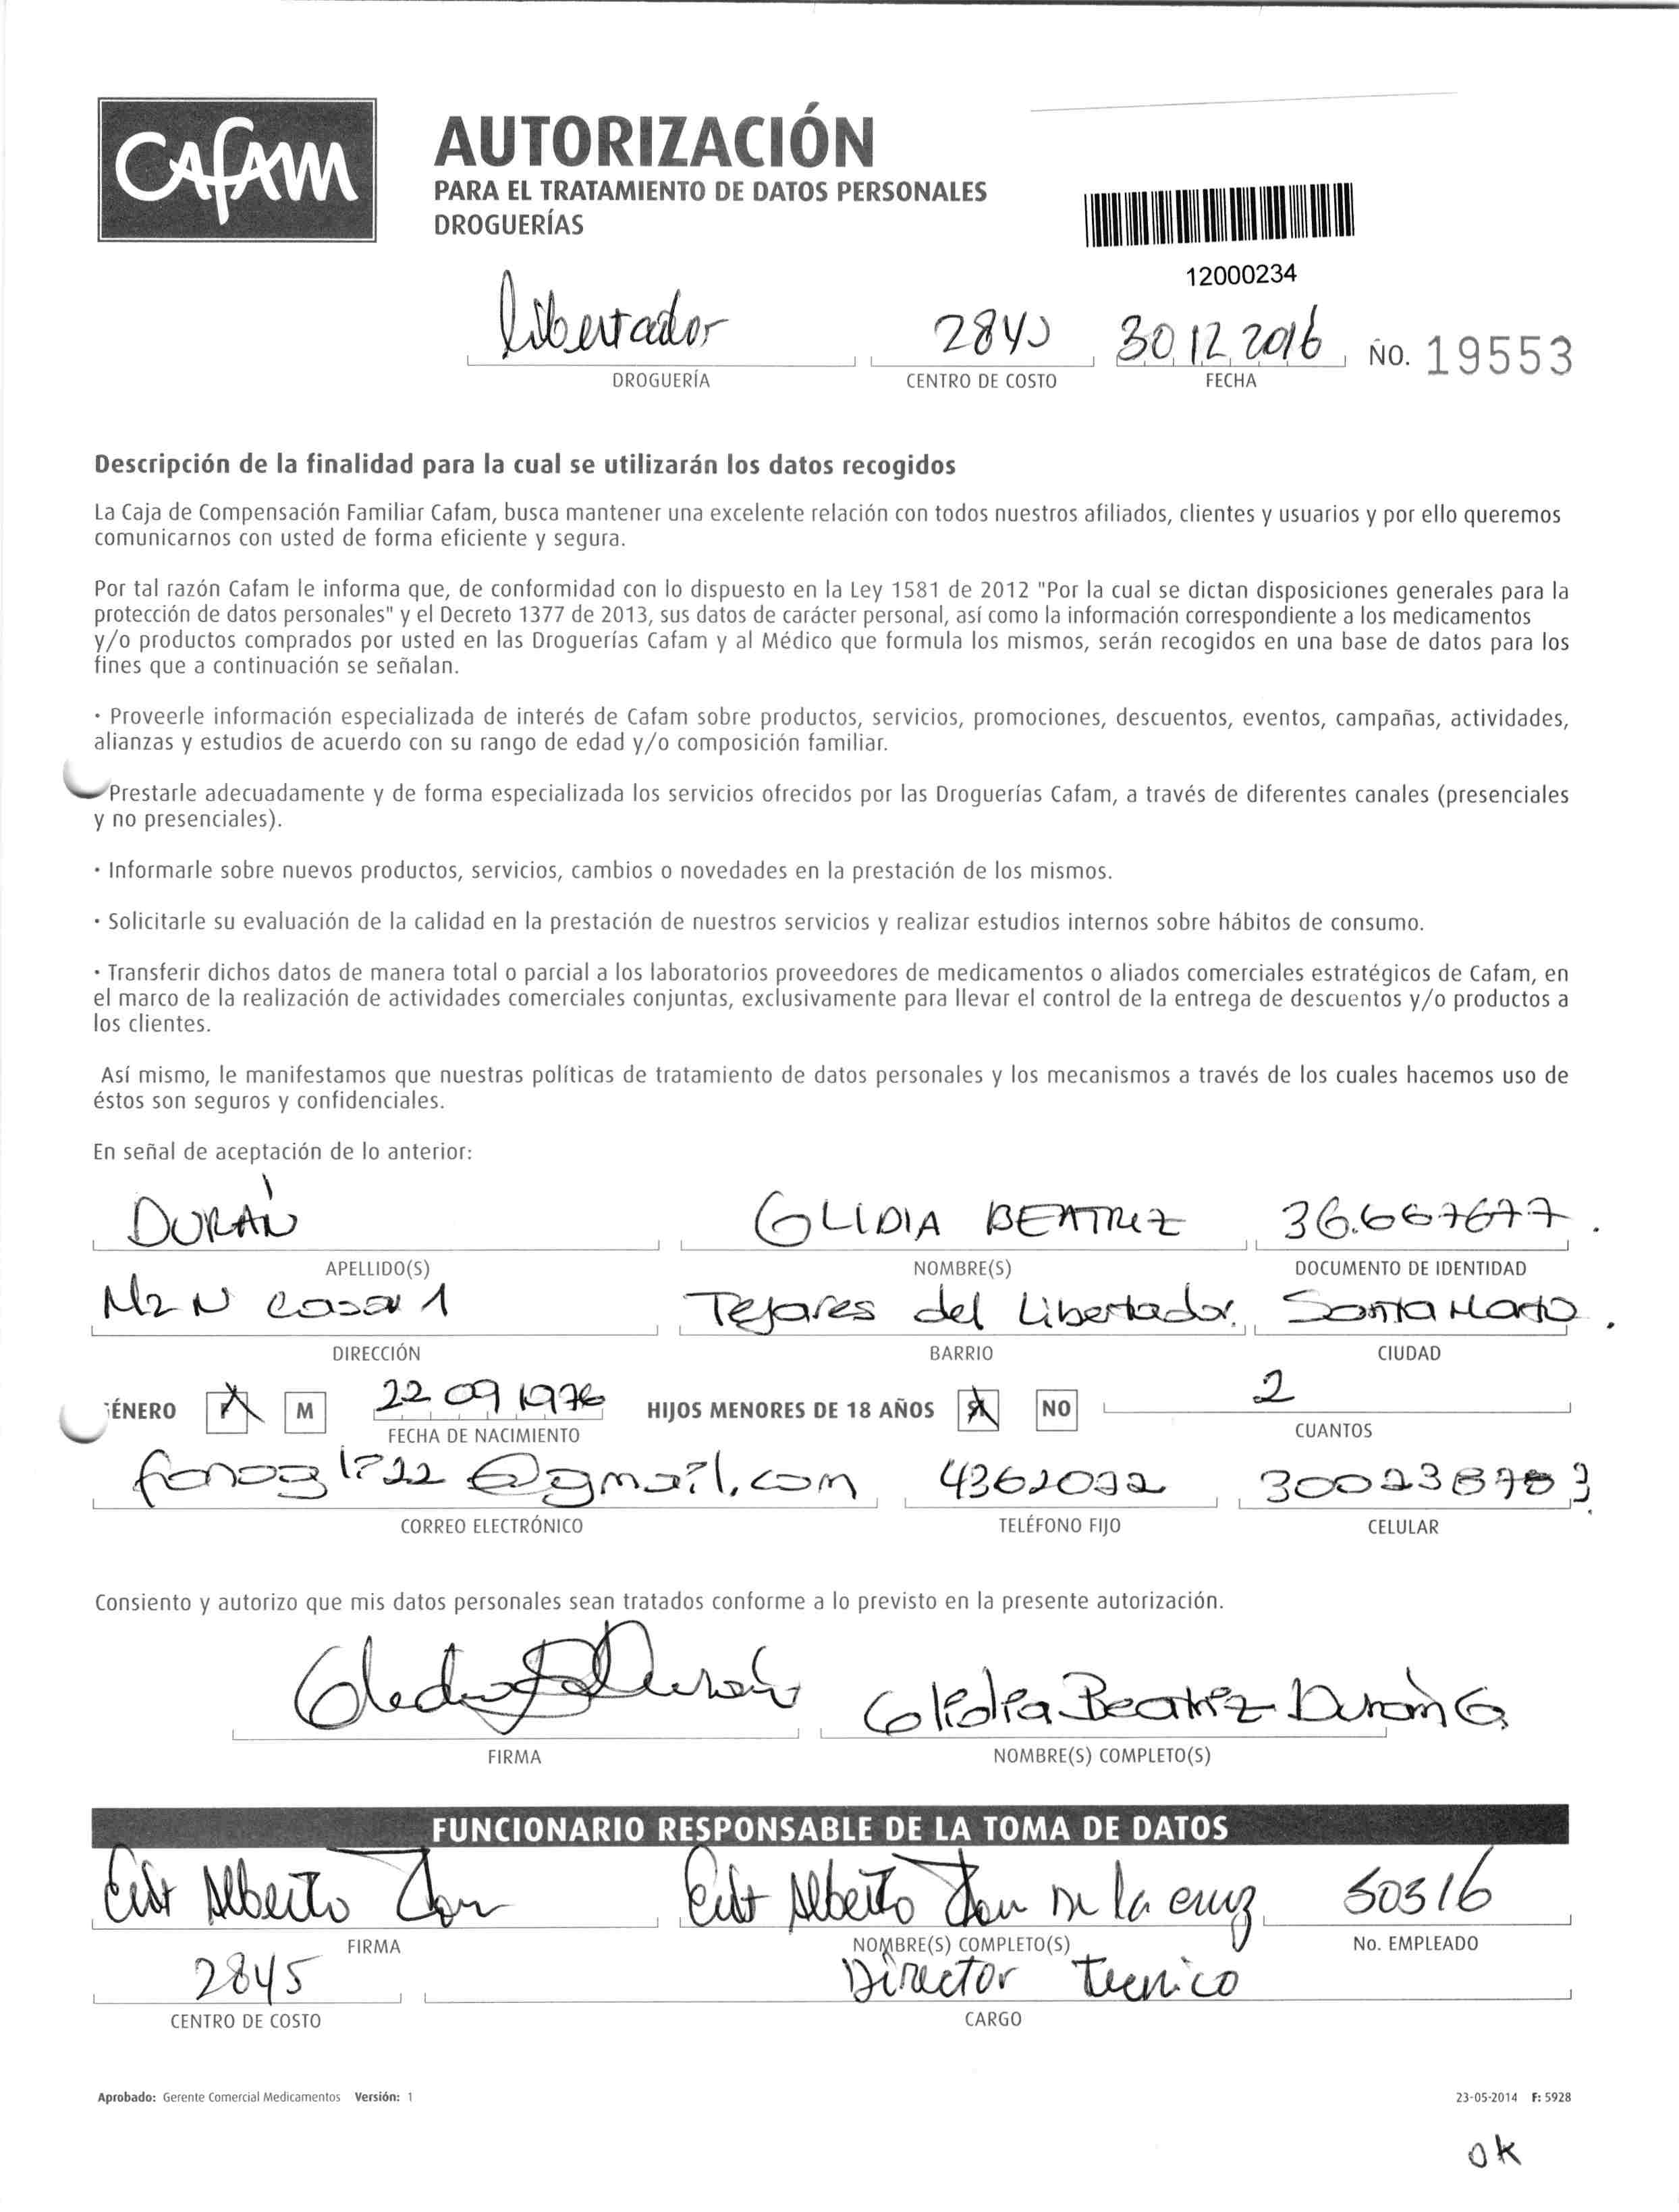 Cafam
AUTORIZACIÓN
PARA EL TRATAMIENTO DE DATOS PERSONALES
DROGUERÍAS
12000234
libertador 2845 30 12 2016 No. 19553
DROGUERÍA CENTRO DE COSTO FECHA
Descripción de la finalidad para la cual se utilizarán los datos recogidos
La Caja de Compensación Familiar Cafam, busca mantener una excelente relación con todos nuestros afiliados, clientes y usuarios y por ello queremos
comunicarnos con usted de forma eficiente y segura.
Por tal razón Cafam le informa que, de conformidad con lo dispuesto en la Ley 1581 de 2012 "Por la cual se dictan disposiciones generales para la
protección de datos personales" y el Decreto 1377 de 2013, sus datos de carácter personal, así como la información correspondiente a los medicamentos
y/o productos comprados por usted en las Droguerías Cafam y al Médico que formula los mismos, serán recogidos en una base de datos para los
fines que a continuación se señalan.
· Proveerle información especializada de interés de Cafam sobre productos, servicios, promociones, descuentos, eventos, campañas, actividades,
alianzas y estudios de acuerdo con su rango de edad y/o composición familiar.
Prestarle adecuadamente y de forma especializada los servicios ofrecidos por las Droguerías Cafam, a través de diferentes canales (presenciales
y no presenciales).
· Informarle sobre nuevos productos, servicios, cambios o novedades en la prestación de los mismos.
· Solicitarle su evaluación de la calidad en la prestación de nuestros servicios y realizar estudios internos sobre hábitos de consumo.
· Transferir dichos datos de manera total o parcial a los laboratorios proveedores de medicamentos o aliados comerciales estratégicos de Cafam, en
el marco de la realización de actividades comerciales conjuntas, exclusivamente para llevar el control de la entrega de descuentos y/o productos a
los clientes.
Así mismo, le manifestamos que nuestras políticas de tratamiento de datos personales y los mecanismos a través de los cuales hacemos uso de
éstos son seguros y confidenciales.
En señal de aceptación de lo anterior:
DURÁN GLIDIA BEATRIZ 36.667677.
APELLIDO(S) NOMBRE(S) DOCUMENTO DE IDENTIDAD
Mz N Casa 1 Tejares del Libertador. Santa Marta.
DIRECCIÓN BARRIO CIUDAD
ÉNERO F M 22 09 1976 HIJOS MENORES DE 18 AÑOS SI NO 2
FECHA DE NACIMIENTO CUANTOS
@gmail.com 4362032
CORREO ELECTRÓNICO TELÉFONO FIJO CELULAR
Consiento y autorizo que mis datos personales sean tratados conforme a lo previsto en la presente autorización.
Durán Glidia Beatriz Durán G
FIRMA NOMBRE(S) COMPLETO(S)
FUNCIONARIO RESPONSABLE DE LA TOMA DE DATOS
Alberto Alberto De la cruz 50316
FIRMA NOMBRE(S) COMPLETO(S) No. EMPLEADO
2845 Director tecnico
CENTRO DE COSTO CARGO
Aprobado: Gerente Comercial Medicamentos Versión: 1 23-05-2014 F: 5928
ok